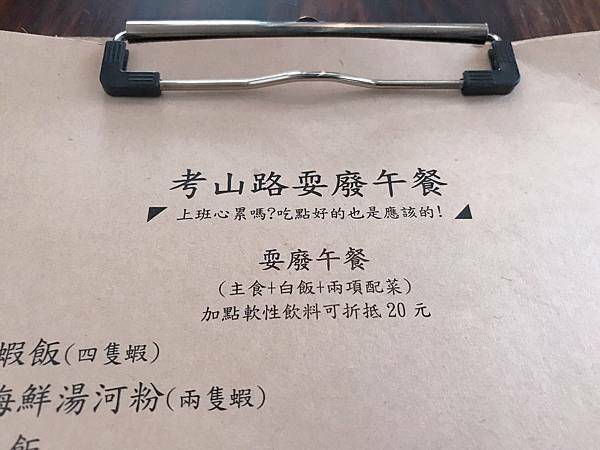 考山路耍廢午餐
上班心累嗎?吃點好的也是應該的!
耍廢午餐
(主食+白飯+兩項配菜)
加點軟性飲料可折抵 20 元
蝦飯(四隻蝦)
海鮮湯河粉(兩隻蝦)
飯